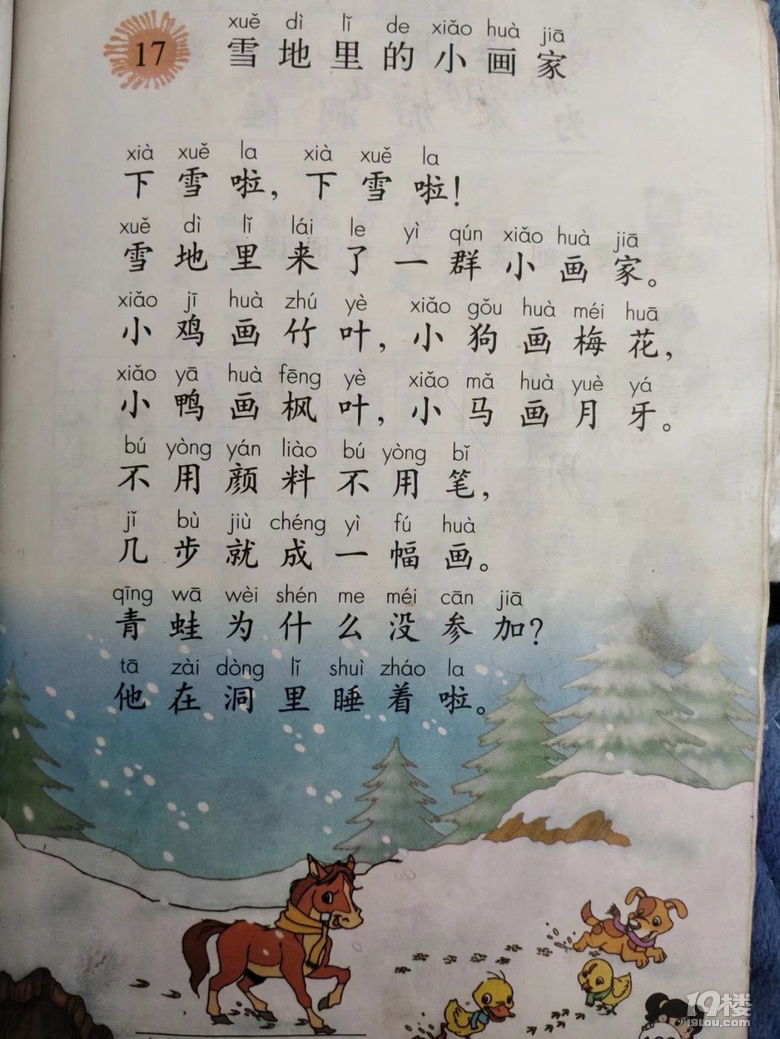 17
xuě dì lǐ de xiǎo huà jiā
雪地里的小画家
xià xuě la xià xuě la
下雪啦，下雪啦！
xuě dì lǐ lái le yì qún xiǎo huà jiā
雪地里来了一群小画家。
xiǎo jī huà zhú yè xiǎo gǒu huà méi huā
小鸡画竹叶，小狗画梅花，
xiǎo yā huà fēng yè xiǎo mǎ huà yuè yá
小鸭画枫叶，小马画月牙。
bú yòng yán liào bú yòng bǐ
不用颜料不用笔，
jǐ bù jiù chéng yì fú huà
几步就成一幅画。
qīng wā wèi shén me méi cān jiā
青蛙为什么没参加？
tā zài dòng lǐ shuì zháo la
他在洞里睡着啦。
19楼
19LOU.COM